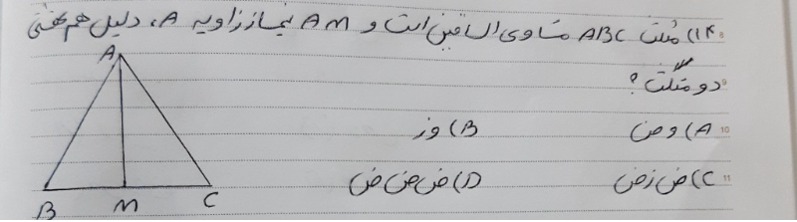 ۱۴) مثلث ABC متساوی الساقین است و AM نیمساز زاویه A، دلیل هم نهشتی
دو مثلث؟
A) وض
B) وز
C) ض ز ض
D) ض ض ض
A
B
M
C